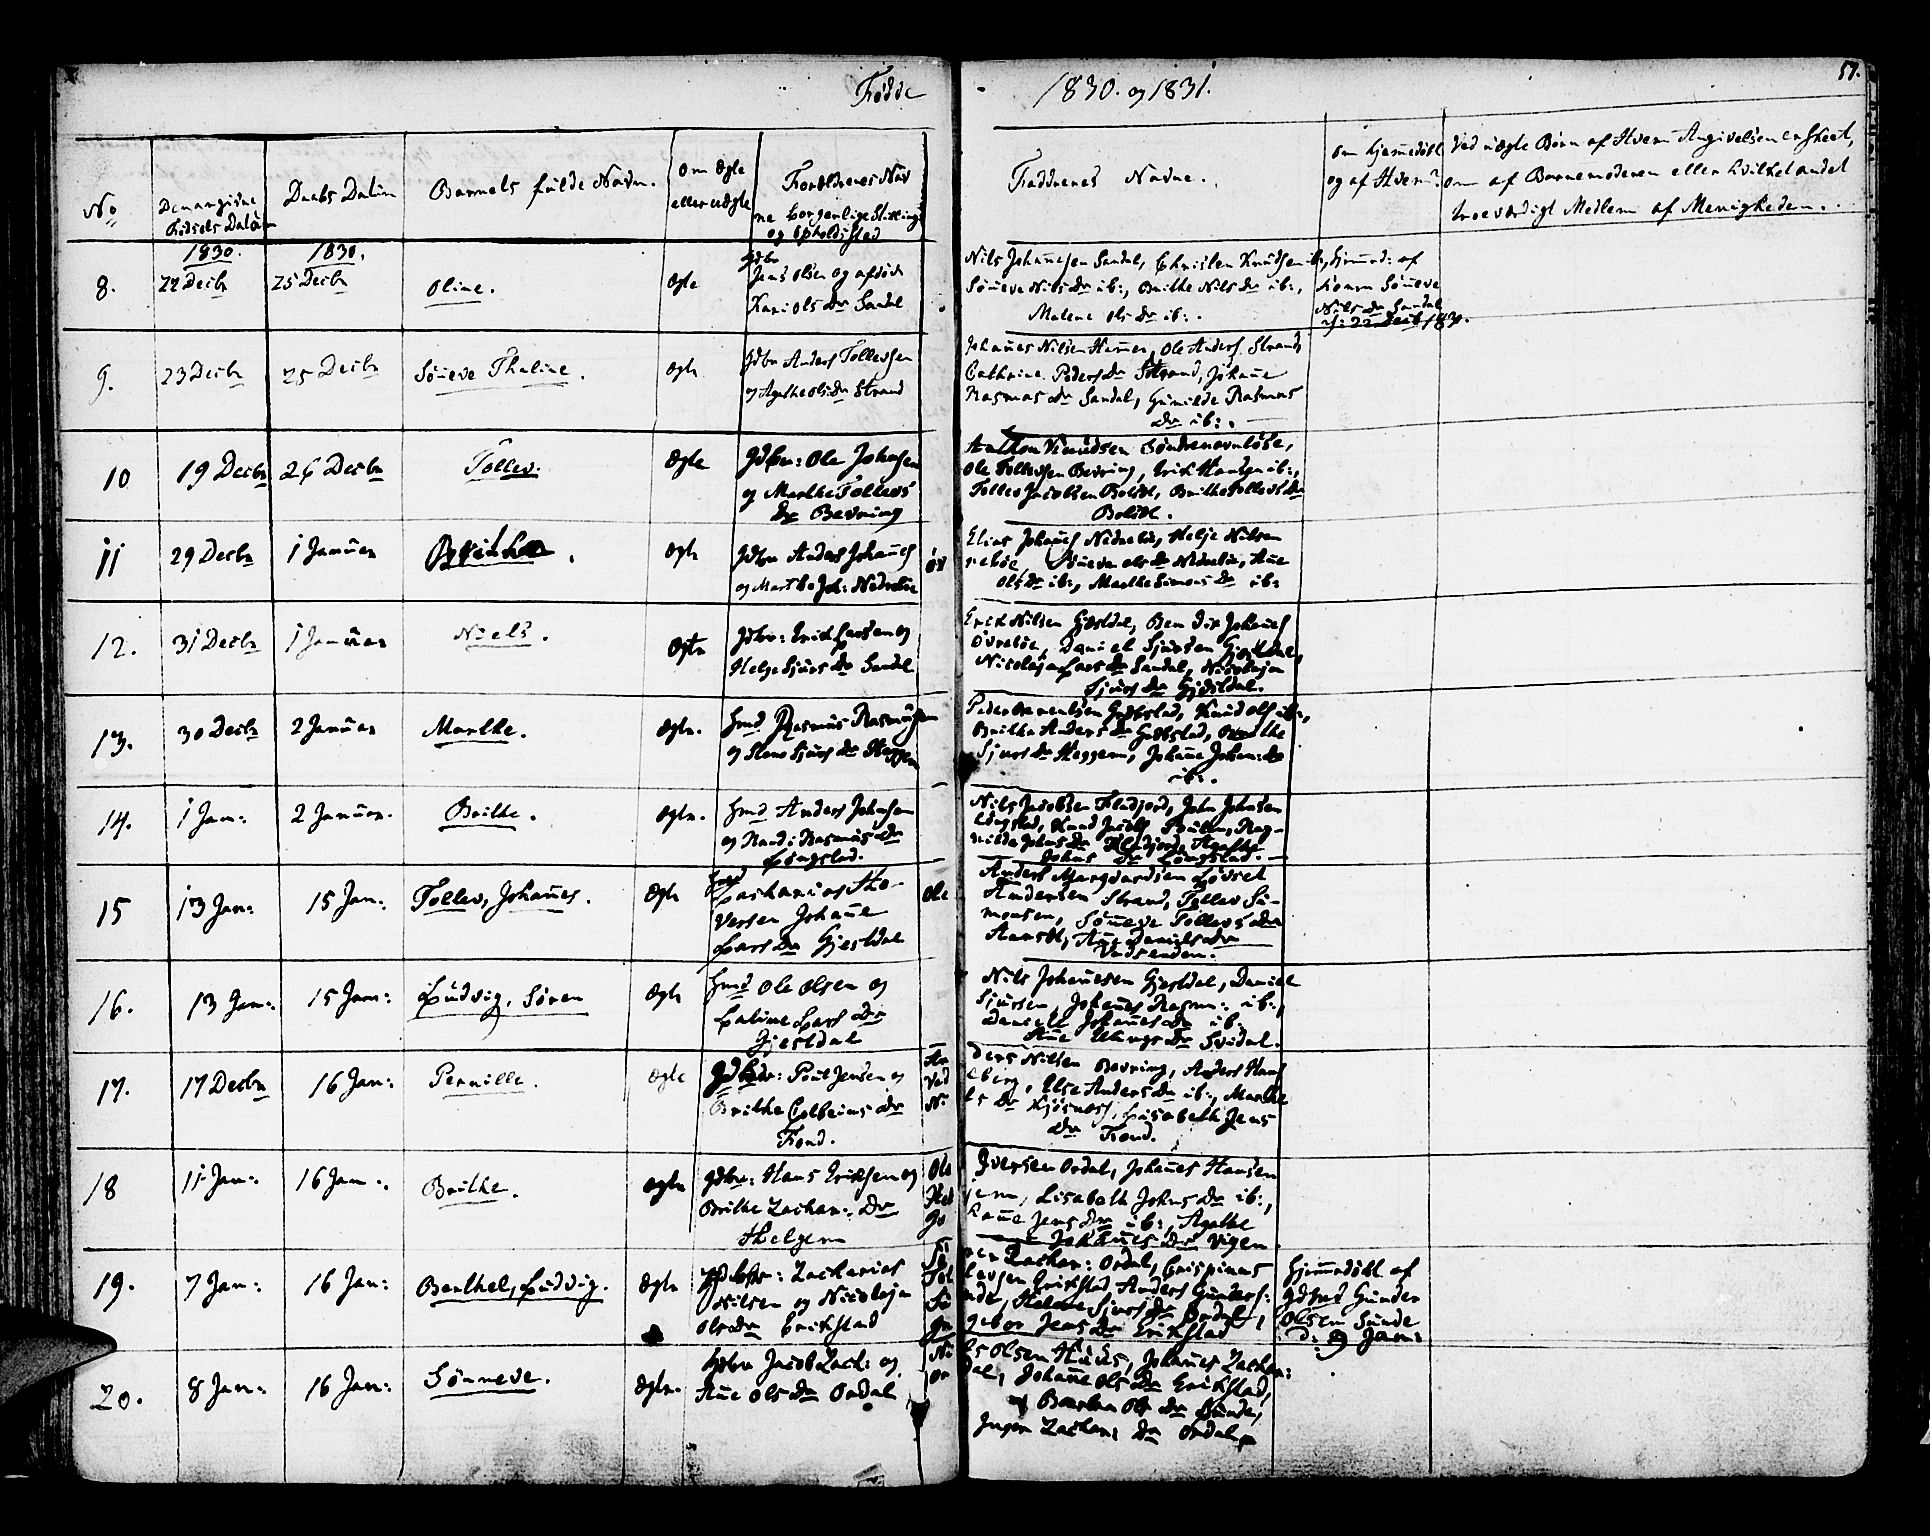 Fødde
1830. og 1831.
57.
No
Den angivne
Fødsels Datum
Daabs Datum
Barnets fulde Navn.
om Ægte
eller uægte
Forældrenes Nav
ne borgerlige Stilling
og Opholdssted
Faddernes Navne.
om hjemmedøbt
og af Hvem?
Ved uægte Børn af Hvem Angivelsen er skeet,
om af Barnemoderen eller hvilket andet
troeværdigt Medlem af Menigheden.
1830.
1830.
8.
22 Decbr
25 Decbr
Oline.
Ægte
Gdbr
Jens Olsen og afdøde
Kari Ols Dr Sandal
Nils Johannesen Sandal, Christen Knudsen ib:,
Sønneve Nils Dr ib:, Brithe Nils Dr ib:,
Malene Ols Dr ib:.
hjemmd: af
Konen Sønneve
Nils Dr Sandal
d: 22 Decb 1830.
9.
23 Decbr
25 Decbr
Sønneve Thaline.
Ægte
Gdbr Anders Tollevsen
og Agathe Ols Dr Strand
Johannes Nilsen Hamer, Ole Anders. Strand,
Cathrine Peders Dr Strand, Johanne
Rasmus Dr Sandal, Gunilde Rasmus
Dr ib:.
10
19 Decbr
26 Decbr
Tollev.
Ægte
Gdbr: Ole Johnsen
og Marthe Tollevs
Dr Bevring
Anthon Knudsen Søndrenesløse,
Ole Tollevsen Bevring, Erik Hansen ib:,
Tollev Jacobsen Bolset, Brithe Tollevs Dr
Bolset.
11
29 Decbr
1 Januar
Brithe.
Ægte
Gdbr Anders Johannes
og Marthe Joh: Nedrebøe
Elias Johannes Nedrebøe, Helje Nilsen
Øvrebøe, Sønneve Ols Dr Nedrebøe, Anne
Ols Dr ib:, Marthe Simons Dr ib:
12.
31 Decbr
1 Januar
Niels.
Ægte
Gdbr: Erik Larsen og
Helge Sjurs Dr Sandal
Erik Nilsen Gjesdal, Bendix Johannes
Øvrebøe, Daniel Sjursen Gjesdal,
Nicolaja Lars Dr Sandal, Nicolaja
Sjurs Dr Gjesdal.
13.
30 Decbr
2 Januar
Marthe.
Ægte.
Hmd Rasmus Rasmusen
og Stene Sjurs Dr Heggem
Britha Anders Dr
Sjurs Dr Heggem, Johanne Johan: Dr
ib:.
14.
1 Jan:
2 Januar.
Brithe.
Ægte.
Hmd Anders Johnsen
og Rand: Rasmus Dr
Løngstad.
Nils Jacobsen Fladjord, John Johnsen
Johns Dr Løngstad.
15
13 Jan:
15 Jan:
Tollev, Johannes.
Ægte
Hmd
Zacharias Tho-
versen Johanne
Lars Dr Gjesdal
Ole
Anders Margvardsen Løvset
Andersen Strand, Tollev Si-
monsen, Sønneve Tollevs Dr
Aarset, Anne Daniels Dr
Vadsenden.
16.
13 Jan:
15 Jan:
Ludvig, Søren
Ægte
Hmd Ole Olsen og
Laline Lars Dr
Gjesdal
Nils Johannesen Gjesdal, Daniel
Sjursen, Johannes Rasm: ib:,
Danielle Johannes Dr ib.
Anne Dr Svidal.
17.
17 Decbr
16 Jan:
Pernille.
Ægte
Gdbr: Poul Jensen og
Brithe Colbeins Dr
Fond.
Anders Nilsen Bevring, Anders Hans
Vadeberg, Else Anders Dr ib:, Marthe
Nils Dr Kjøsnes, Lisabeth Jens
Dr Fond.
18
11 Jan:
16 Jan:
Brithe.
Ægte
Gdbr: Hans Eriksen og
Brithe Zachar: Dr
Helgem
Ole Iversen Ordal, Johannes Hansen
Helgjem, Lisabeth Johns Dr ib:,
Johanne Jens Dr ib:, Agathe
Johannes Dr Vigen.
19.
7 Jan:
16 Jan:
Berthel, Ludvig.
Ægte
Gdbr: Zacharias
Nilsen og Nicolaja
Ols Dr Erikstad
Zachar: Ordal, Crispinus
Tollevsen Erikstad, Anders Gunders:
Sunde, Helene Sjurs Dr Ordal,
Ingebor Jens Dr Erikstad
Hjemmedøbt af
Gdmd Gunder
Olsen Sunde
d: 9 Jan:
20.
8 Jan:
16 Jan:
Sønneve.
Ægte.
Gdbr Jacob Zach: og
Anne Ols Dr Ordal
Nils Olsen Huus, Johannes Zachar:
Ordal, Johanne Ols Dr Erikstad,
Barbra Ols Dr Sunde,
Inger Zachar: Dr Ordal